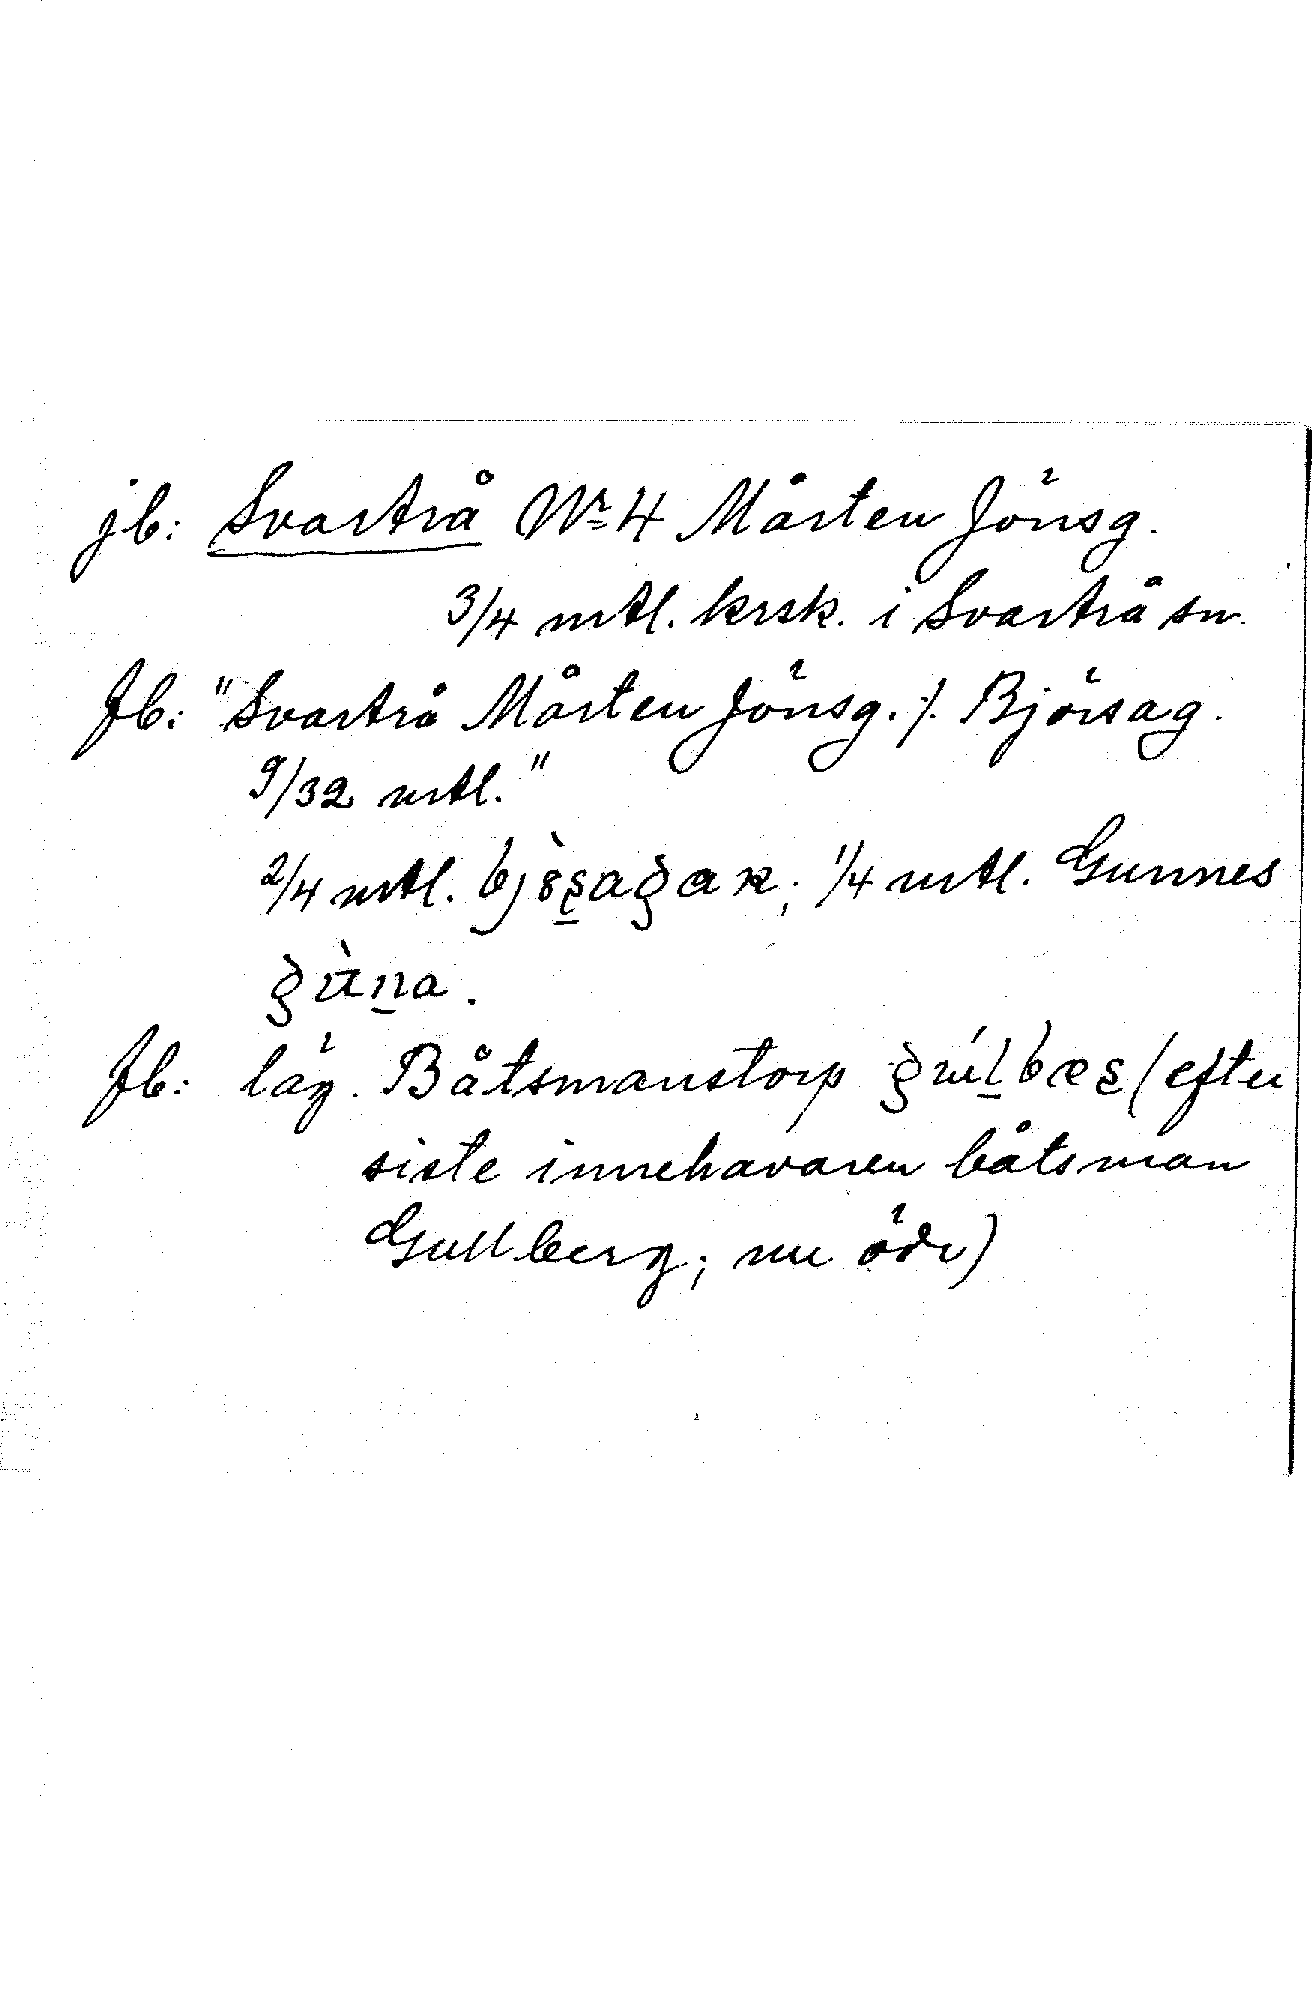 jb: Svartrå Nr 4 Mårten Jönsg.
3/4 mtl. krsk. i Svartrå sn.
fb: "Svartrå Mårten Jönsg. /. Björsag.
9/32 mtl."
2/4 mtl. ; 1/4 mtl. Gunnes
fb: läg. Båtsmanstorp (efter
siste innehavaren båtsman
Gullberg; nu öde)